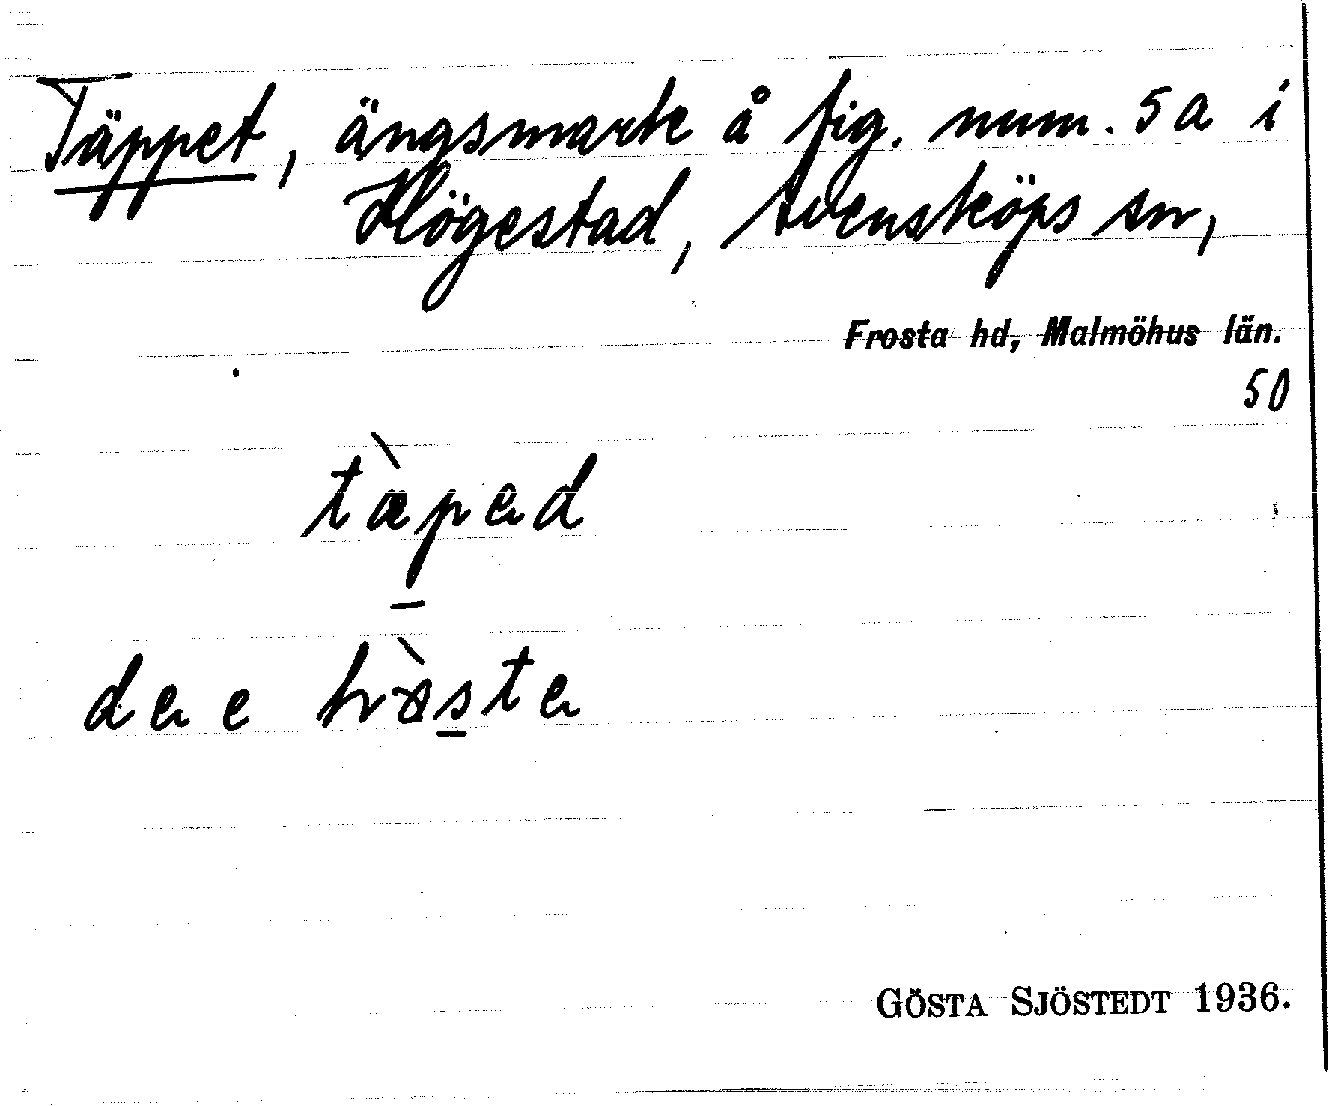 Täppet, ängsmark å fig. num. 5a i
Högestad, Svensköps sn,
Frosta hd, Malmöhus län.
50
tæ̀pəd
GÖSTA SJÖSTEDT 1936.